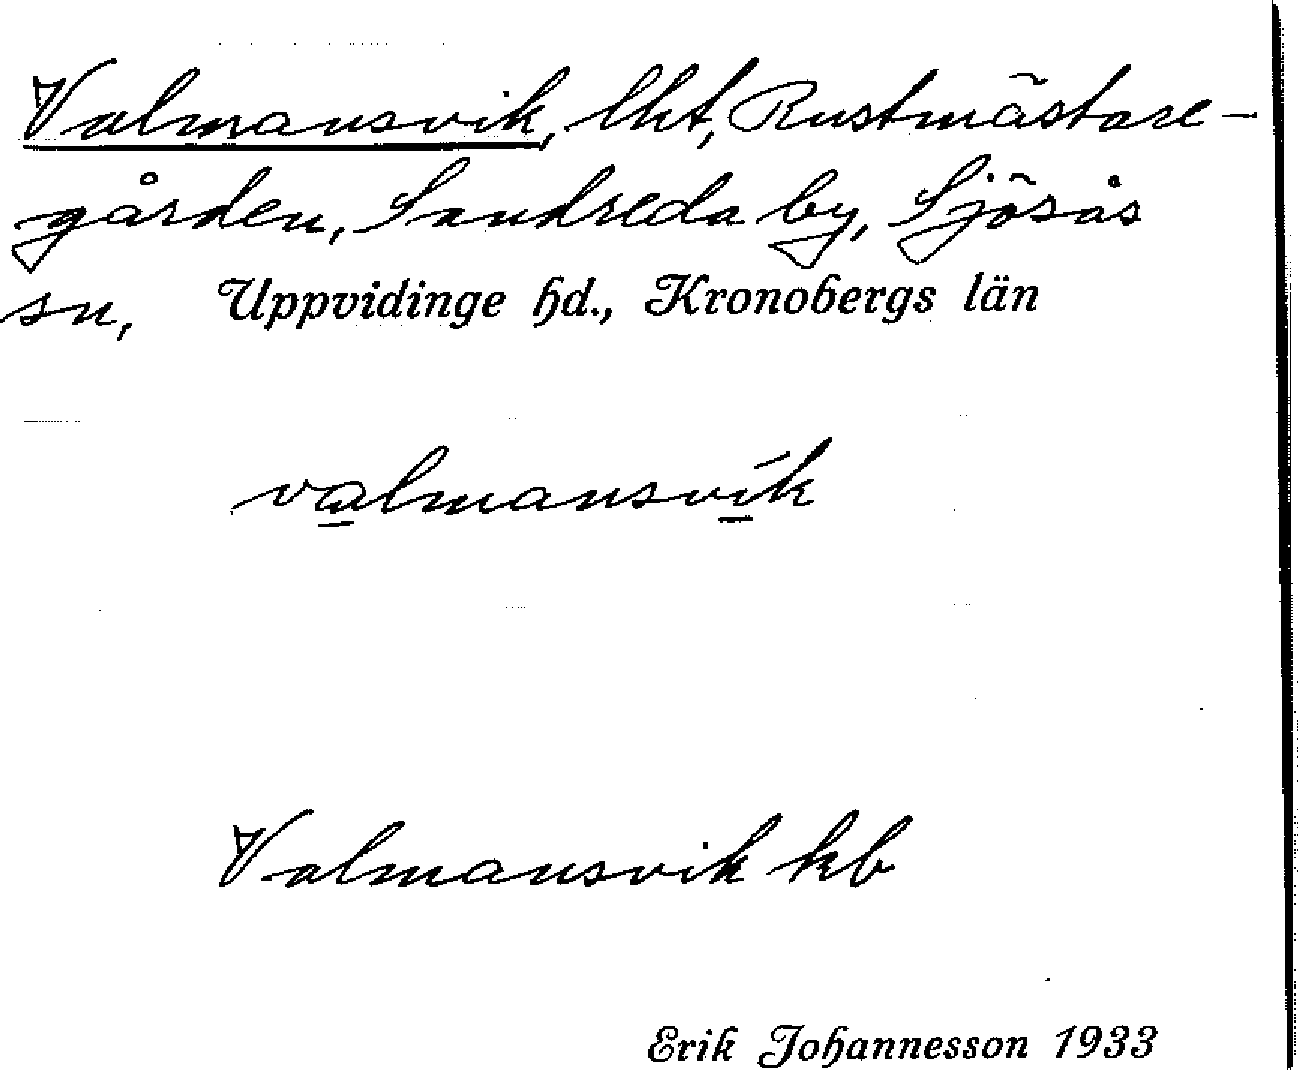 Valmansvik, lht, Rustmästare-
gården, Sandreda by, Sjösås
sn, Uppvidinge hd., Kronobergs län
valmansvík
Valmansvik kb
Erik Johannesson 1933